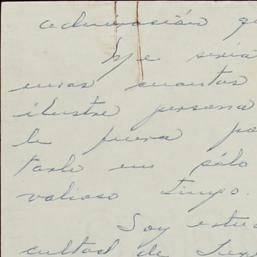 admiración q
Me sería
unas cuantas
ilustre persona
le fuera po
tarle en sólo
valioso tiempo.
Soy estu
cultad de